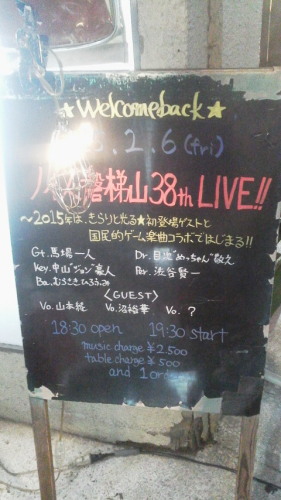 ★Welcomeback★
.2.6(fri)
磐梯山38th LIVE!!
～2015年は、きらりと光る★初登場ゲストと
国民的ゲーム楽曲コラボではじまる!!
Gt.馬場一人 Dr.目次"めっちゃん"敬之
Key.中山"ジョン"豪人 Per.渋谷賢一
Ba.むらさきひろふみ
〈GUEST〉
Vo.山本 Vo.沼裕華 Vo.?
18:30 open 19:30 start
music charge ¥2.500
table charge ¥500
and 1 order